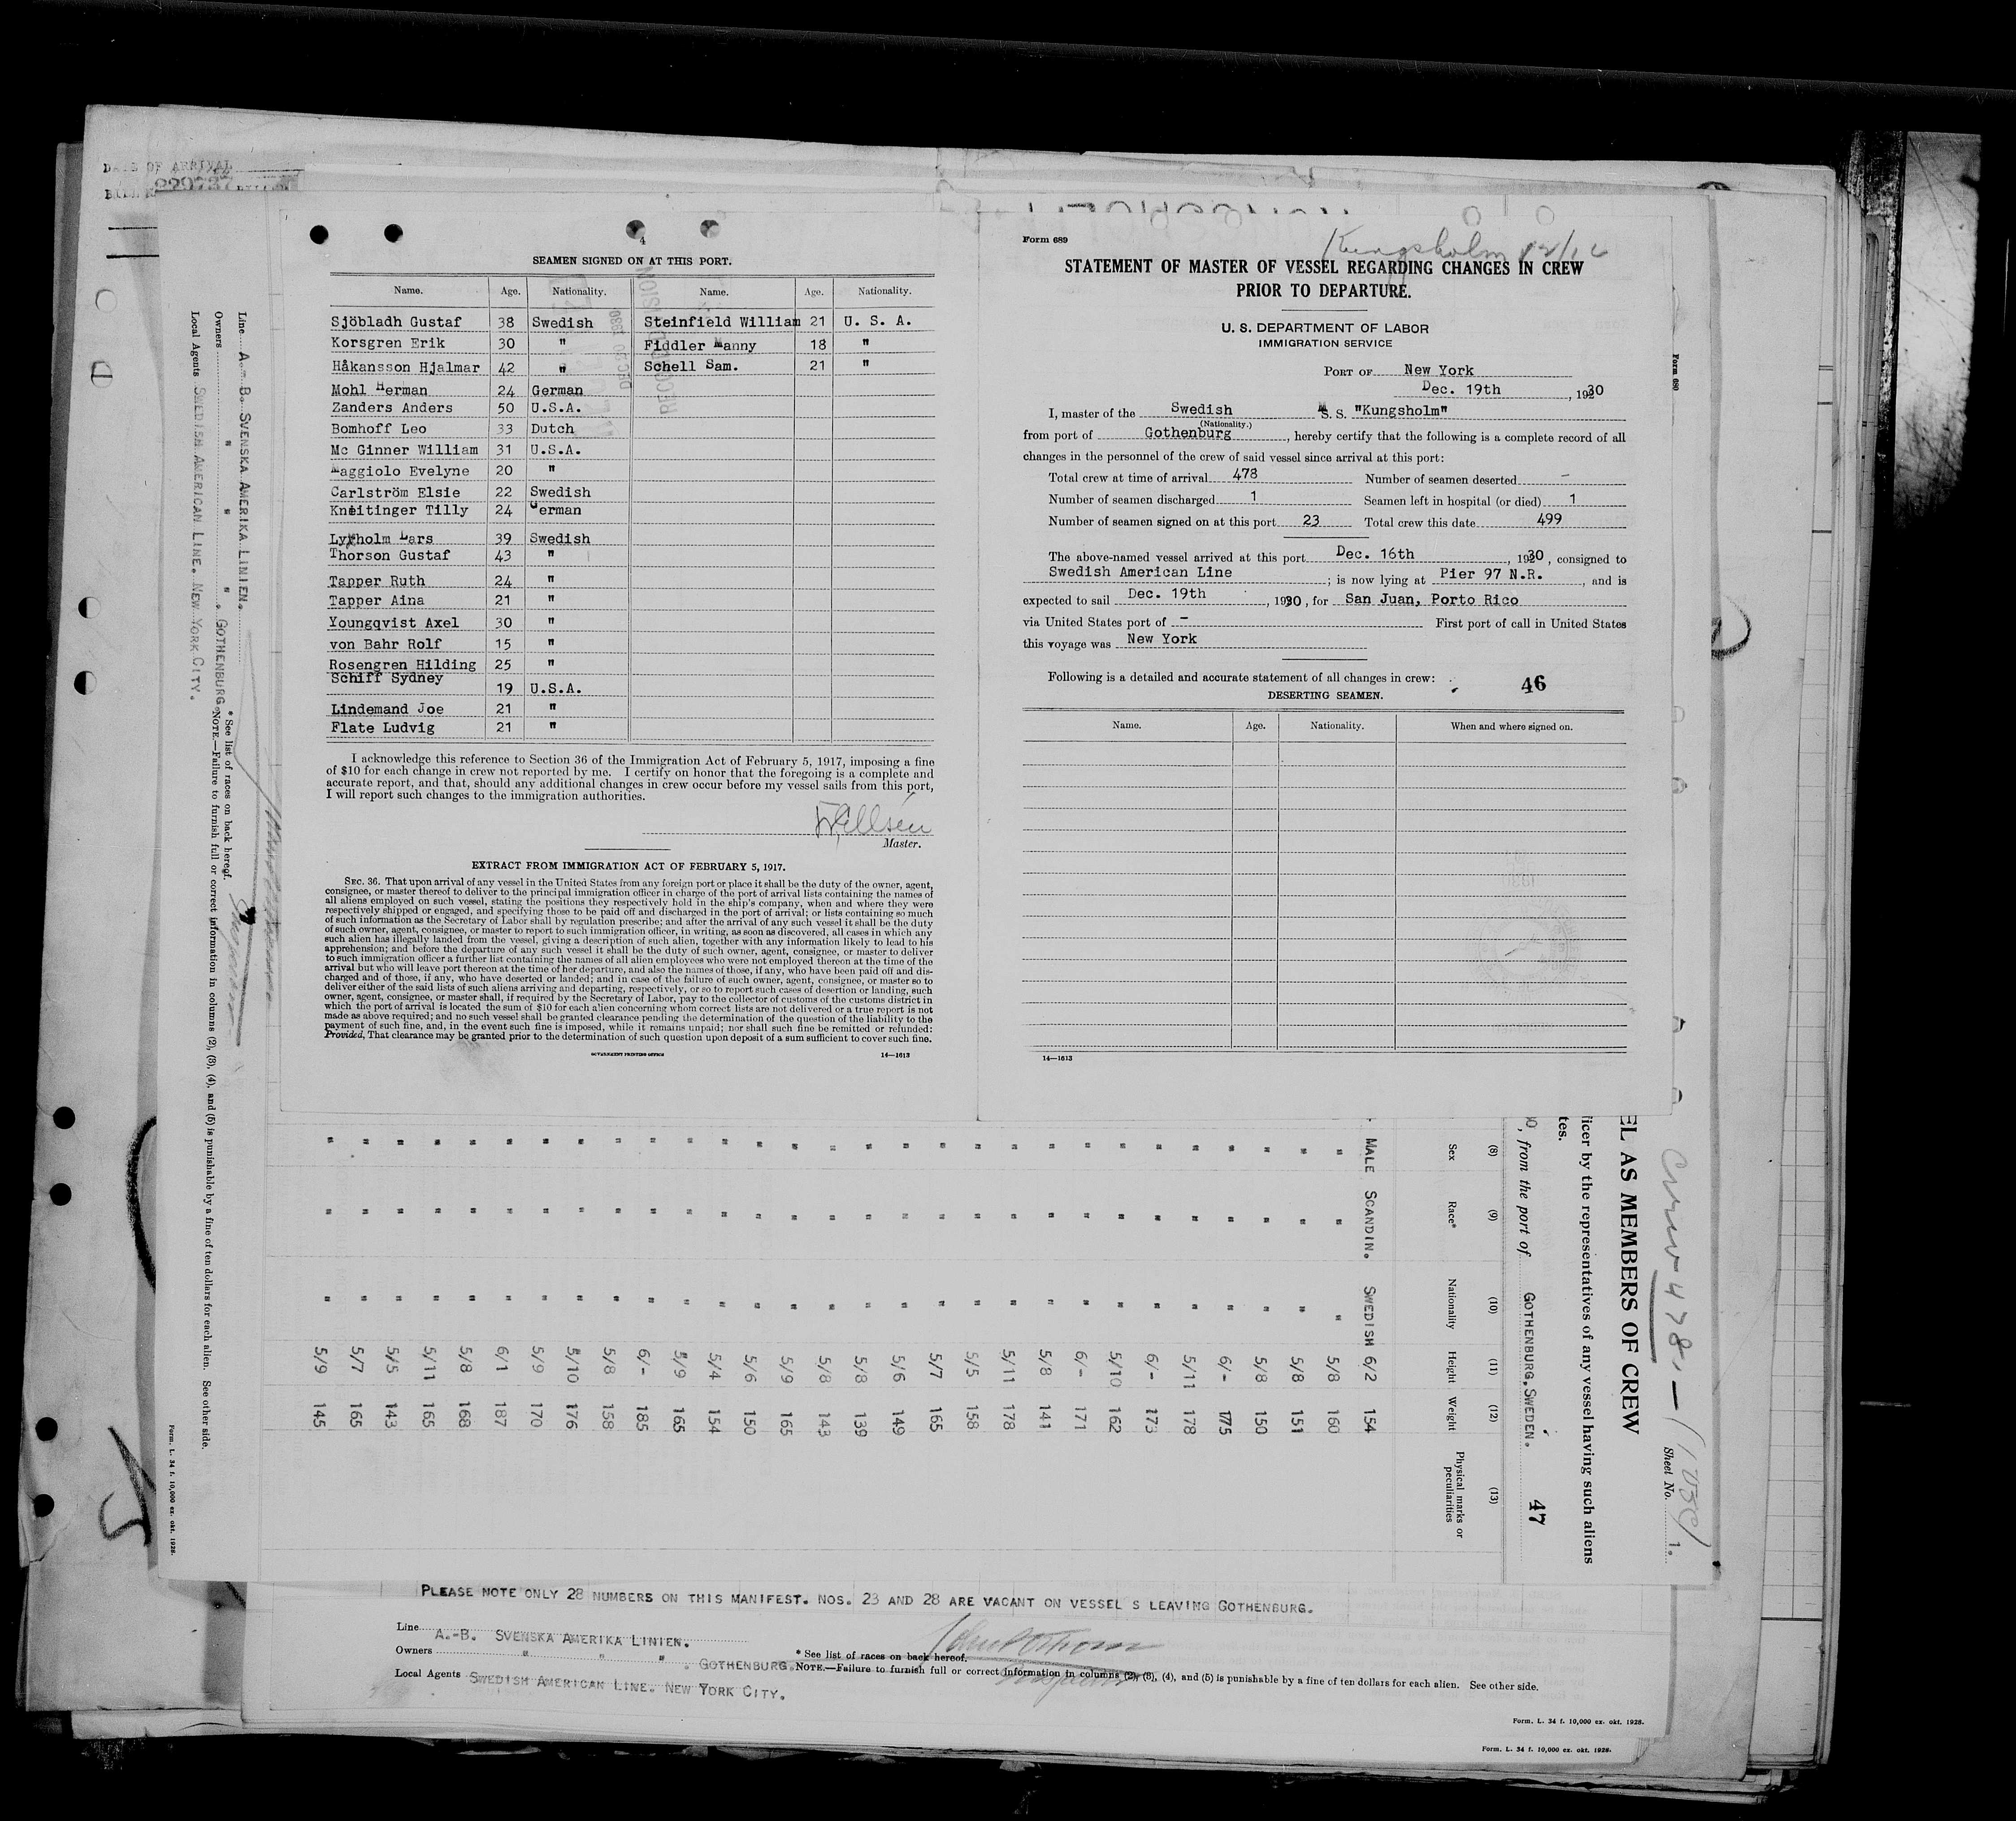 DATE OF ARRIVAL
229737
4
SEAMEN SIGNED ON AT THIS PORT.
Name. Age. Nationality. Name. Age. Nationality.
Sjöbladh Gustaf 38 Swedish Steinfield William 21 U. S. A.
Korsgren Erik 30 " Fiddler Manny 18 "
Håkansson Hjalmar 42 " Schell Sam. 21 "
Mohl Herman 24 German
Zanders Anders 50 U.S.A.
Bomhoff Leo 33 Dutch
Mc Ginner William 31 U.S.A.
Maggiolo Evelyne 20 "
Carlström Elsie 22 Swedish
Kneitinger Tilly 24 German
Lyxholm Lars 39 Swedish
Thorson Gustaf 43 "
Tapper Ruth 24 "
Tapper Aina 21 "
Youngqvist Axel 30 "
von Bahr Rolf 15 "
Rosengren Hilding 25 "
Schiff Sydney 19 U.S.A.
Lindemand Joe 21 "
Flate Ludvig 21 "
I acknowledge this reference to Section 36 of the Immigration Act of February 5, 1917, imposing a fine
of $10 for each change in crew not reported by me. I certify on honor that the foregoing is a complete and
accurate report, and that, should any additional changes in crew occur before my vessel sails from this port,
I will report such changes to the immigration authorities.
Master.
EXTRACT FROM IMMIGRATION ACT OF FEBRUARY 5, 1917.
SEC. 36. That upon arrival of any vessel in the United States from any foreign port or place it shall be the duty of the owner, agent,
consignee, or master thereof to deliver to the principal immigration officer in charge of the port of arrival lists containing the names of
all aliens employed on such vessel, stating the positions they respectively hold in the ship's company, when and where they were
respectively shipped or engaged, and specifying those to be paid off and discharged in the port of arrival; or lists containing so much
of such information as the Secretary of Labor shall by regulation prescribe; and after the arrival of any such vessel it shall be the duty
of such owner, agent, consignee, or master to report to such immigration officer, in writing, as soon as discovered, all cases in which any
such alien has illegally landed from the vessel, giving a description of such alien, together with any information likely to lead to his
apprehension; and before the departure of any such vessel it shall be the duty of such owner, agent, consignee, or master to deliver
to such immigration officer a further list containing the names of all alien employees who were not employed thereon at the time of the
arrival but who will leave port thereon at the time of her departure, and also the names of those, if any, who have been paid off and dis-
charged and of those, if any, who have deserted or landed; and in case of the failure of such owner, agent, consignee, or master so to
deliver either of the said lists of such aliens arriving and departing, respectively, or so to report such cases of desertion or landing, such
owner, agent, consignee, or master shall, if required by the Secretary of Labor, pay to the collector of customs of the customs district in
which the port of arrival is located the sum of $10 for each alien concerning whom correct lists are not delivered or a true report is not
made as above required; and no such vessel shall be granted clearance pending the determination of the question of the liability to the
payment of such fine, and, in the event such fine is imposed, while it remains unpaid; nor shall such fine be remitted or refunded:
Provided, That clearance may be granted prior to the determination of such question upon deposit of a sum sufficient to cover such fine.
GOVERNMENT PRINTING OFFICE 14—1613
Form 689
Kungsholm 12/16
STATEMENT OF MASTER OF VESSEL REGARDING CHANGES IN CREW
PRIOR TO DEPARTURE.
U. S. DEPARTMENT OF LABOR
IMMIGRATION SERVICE
PORT OF New York
Dec. 19th, 1930
I, master of the Swedish M. S. "Kungsholm"
(Nationality.)
from port of Gothenburg, hereby certify that the following is a complete record of all
changes in the personnel of the crew of said vessel since arrival at this port:
Total crew at time of arrival 478 Number of seamen deserted –
Number of seamen discharged 1 Seamen left in hospital (or died) 1
Number of seamen signed on at this port 23 Total crew this date 499
The above-named vessel arrived at this port Dec. 16th, 1930, consigned to
Swedish American Line; is now lying at Pier 97 N.R., and is
expected to sail Dec. 19th, 1930, for San Juan, Porto Rico
via United States port of – First port of call in United States
this voyage was New York
Following is a detailed and accurate statement of all changes in crew: 46
DESERTING SEAMEN.
Name. Age. Nationality. When and where signed on.
14—1613
Form 689
Crew 478.—
Sheet No. 1.
EL AS MEMBERS OF CREW
ficer by the representatives of any vessel having such aliens
tes.
, from the port of GOTHENBURG, SWEDEN. 47
(8) (9) (10) (11) (12) (13)
Sex Race* Nationality Height Weight Physical marks or peculiarities
MALE SCANDIN. SWEDISH 6/2 154
" " " 5/8 160
" " " 5/8 151
" " " 5/8 150
" " " 6/- 175
" " " 5/11 178
" " " 6/- 173
" " " 5/10 162
" " " 6/- 171
" " " 5/8 141
" " " 5/11 178
" " " 5/5 158
" " " 5/7 165
" " " 5/6 149
" " " 5/8 139
" " " 5/8 143
" " " 5/9 165
" " " 5/6 150
" " " 5/4 154
" " " 5/9 165
" " " 6/- 185
" " " 5/8 158
" " " 5/10 176
" " " 5/9 170
" " " 6/1 187
" " " 5/8 168
" " " 5/11 165
" " " 5/5 143
" " " 5/7 165
" " " 5/9 145
Line A.-B. SVENSKA AMERIKA LINIEN.
Owners " " " . GOTHENBURG.
Local Agents SWEDISH AMERICAN LINE. NEW YORK CITY.
* See list of races on back hereof.
NOTE.—Failure to furnish full or correct information in columns (2), (3), (4), and (5) is punishable by a fine of ten dollars for each alien. See other side.
Form. L. 34 f. 10,000 ex. okt. 1928.
PLEASE NOTE ONLY 28 NUMBERS ON THIS MANIFEST. NOS. 23 AND 28 ARE VACANT ON VESSEL S LEAVING GOTHENBURG.
Line A.-B. SVENSKA AMERIKA LINIEN.
Owners " " " . GOTHENBURG.
* See list of races on back hereof.
Local Agents SWEDISH AMERICAN LINE. NEW YORK CITY.
NOTE.—Failure to furnish full or correct information in columns (2), (3), (4), and (5) is punishable by a fine of ten dollars for each alien. See other side.
Form. L. 34 f. 10,000 ex. okt. 1928.
Form. L. 34 f. 10,000 ex. okt. 1928.